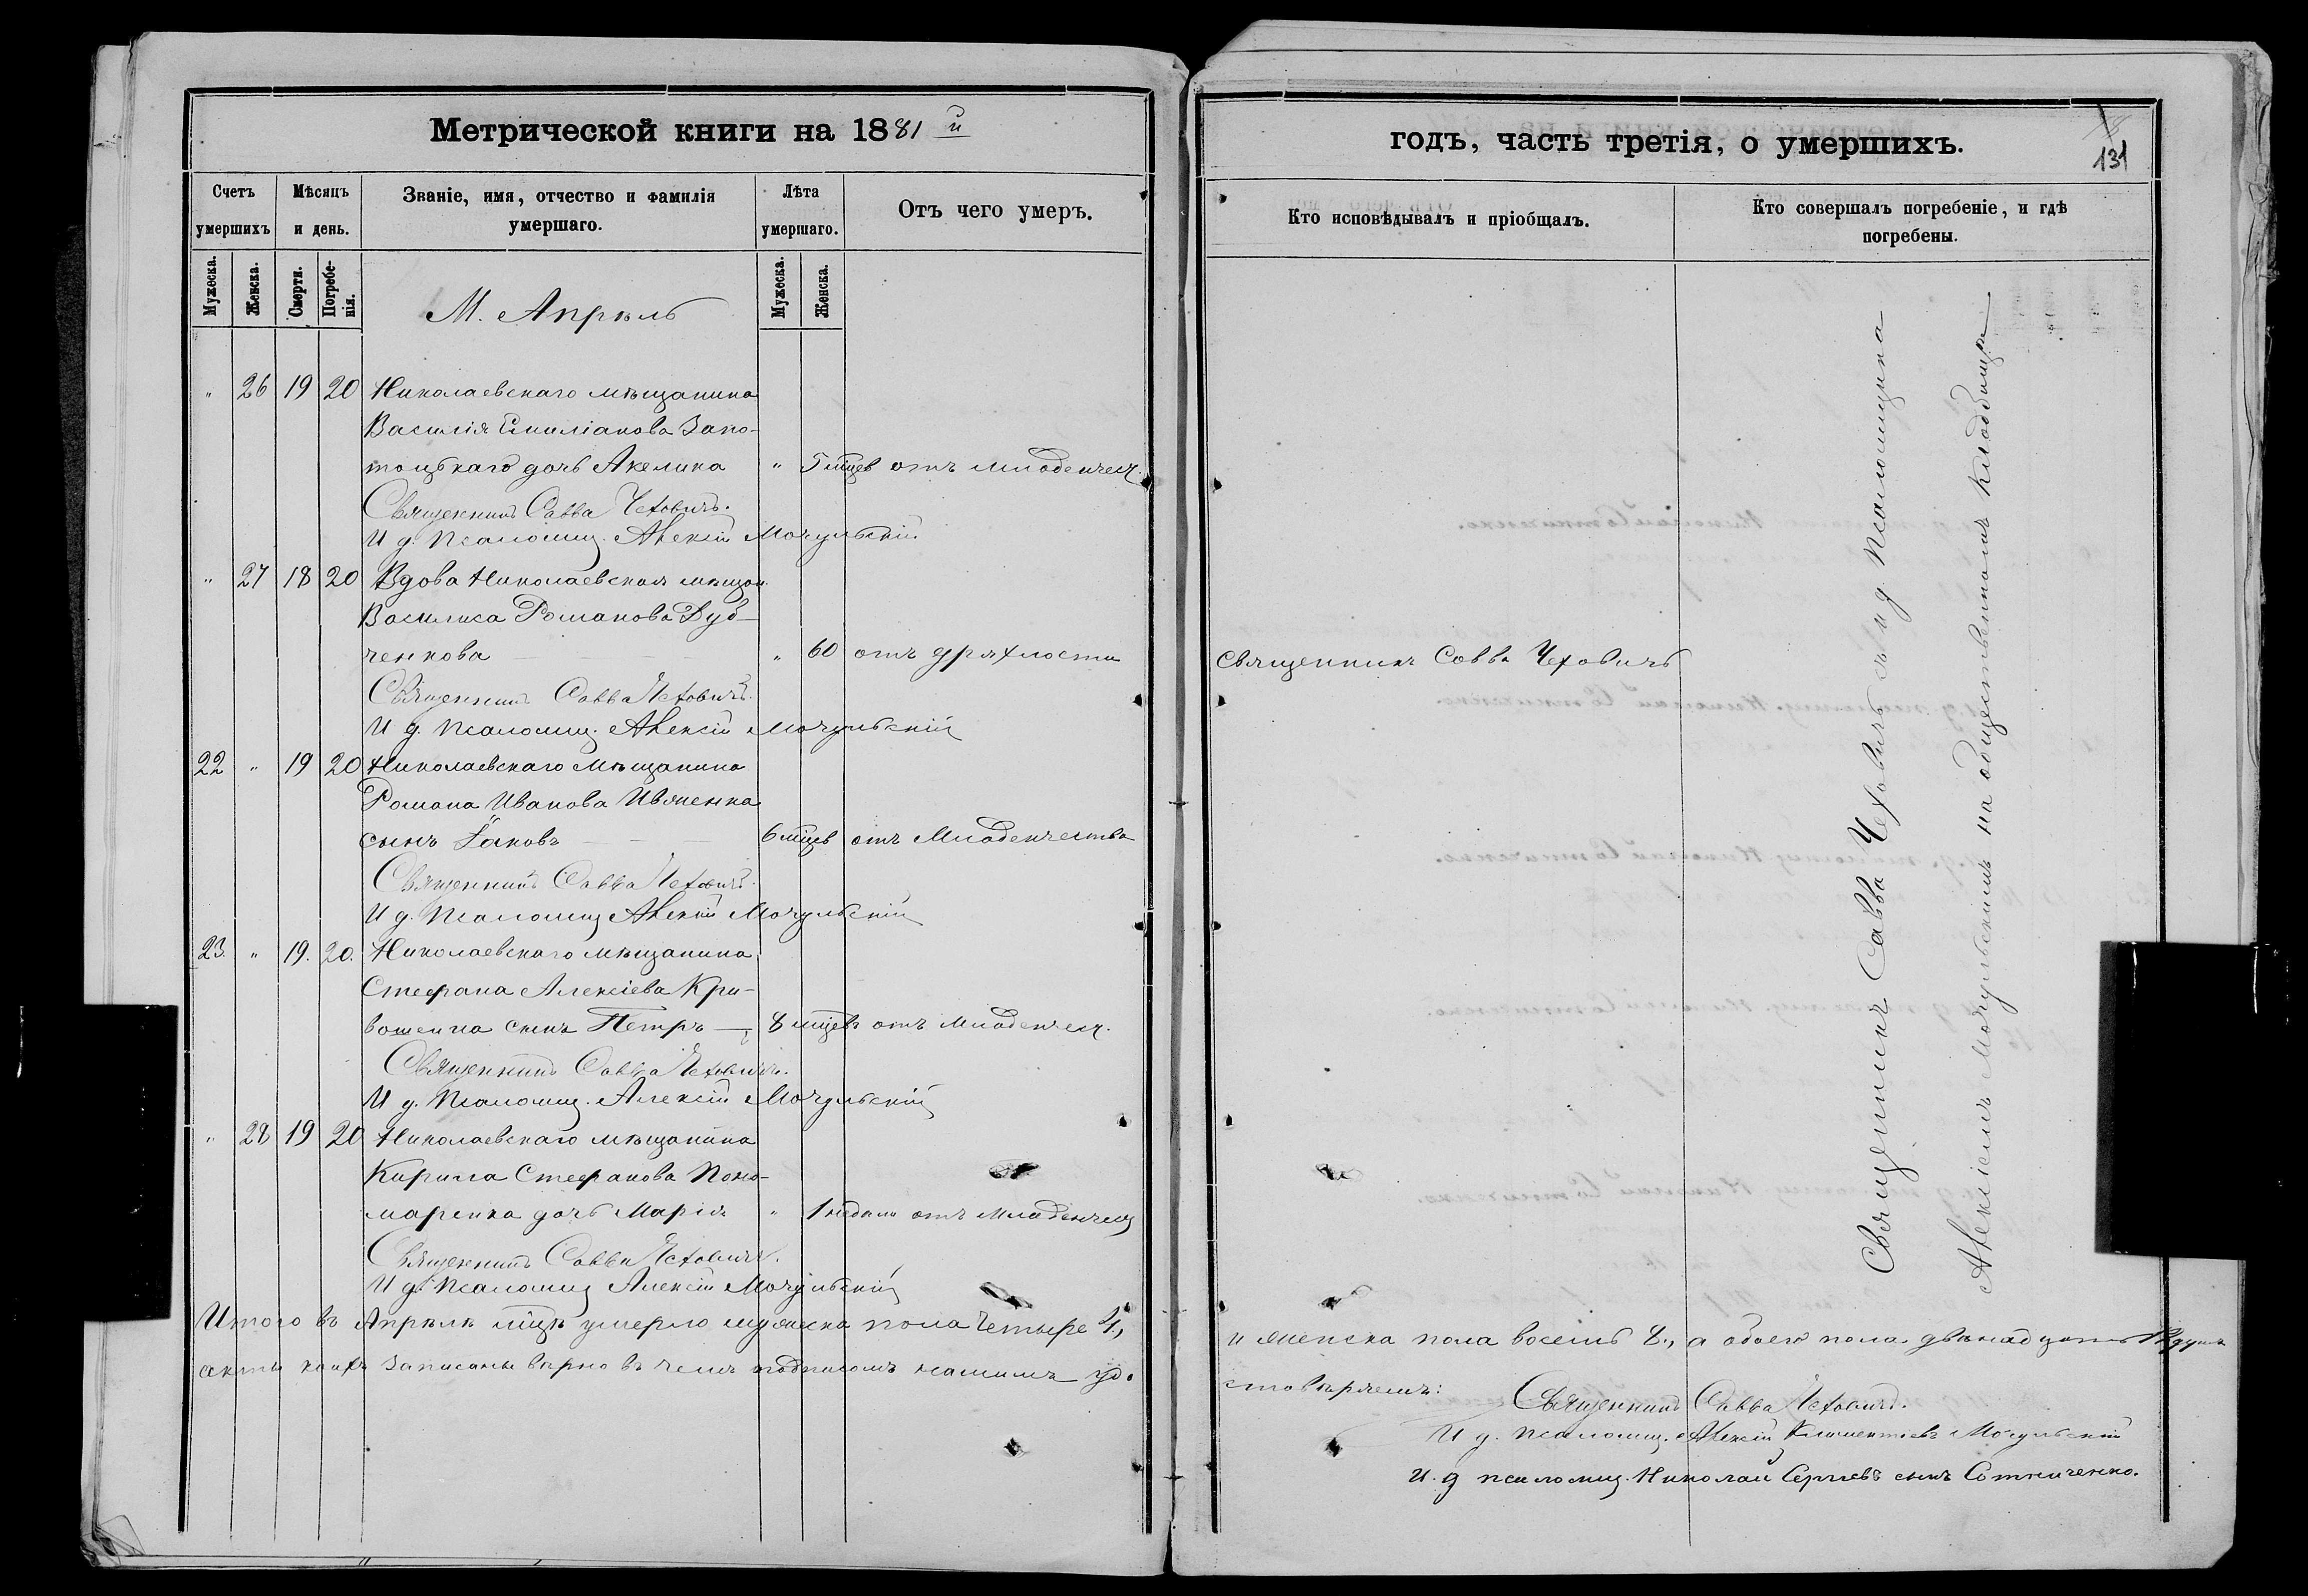 Метрической книги на 1881 й
Счетъ умершихъ
Мѣсяцъ и день.
Званіе, имя, отчество и фамилія умершаго.
Лѣта умершаго.
Отъ чего умеръ.
Мужеска.
Женска.
Смерти.
Погребенія.
М. Апрѣль
Мужеска.
Женска.
" 26 19 20 Николаевскаго мѣщанина
Василія Емиліанова Запо-
тоцькаго дочь Акелина " 5 мцев отъ младенчест.
Священникъ Савва Чеховичъ.
И д. Псаломщ. Алексій Мочульскій.
" 27 18 20 Вдова Николаевская мѣщан.
Василиса Романова Дуб-
ченкова " 60 отъ дряхлости
Священникъ Савва Чеховичъ.
И д. Псаломщ. Алексій Мочульскій
22 " 19 20 Николаевскаго Мѣщанина
Романа Иванова Ивженка
сынъ Іаковъ 6 мцев отъ Младенчества
Священникъ Савва Чеховичъ.
И д. Псаломщ Алексій Мочульскій
23. " 19. 20. Николаевскаго мѣщанина
Стефана Алексіева Кри-
вошеина сынъ Петръ 8 мцевъ отъ младенчест.
Священникъ Савва Чеховичъ.
И д. Псаломщ. Алексій Мочульскій
" 28 19 20 Николаевскаго мѣщанина
Кирила Стефанова Поно-
маренка дочь Марія " 1 недѣли отъ младенчест
Священникъ Савва Чеховичъ.
И д. Псаломщ Алексій Мочульскій
Итого въ Апрѣлѣ мцѣ умерло мужеска пола четыре 4,
акты коихъ записаны вѣрно въ чемъ подписомъ нашимъ удо-
годъ, часть третія, о умершихъ.
131
Кто исповѣдывалъ и пріобщалъ.
Кто совершалъ погребеніе, и гдѣ погребены.
священникъ Савва Чеховичъ
Священникъ Савва Чеховичъ съ и д. Псаломщика
Алексіемъ Мочульскимъ на общественномъ кладбищѣ
и женска пола восемь 8, а обоего пола двѣнадцать 12 душъ
стовѣряемъ:
Священникъ Савва Чеховичъ.
И д. псаломщ. Алексій Климентіевъ Мочульскій
И. д псаломщ. Николай Сергіевъ сынъ Сотниченко.